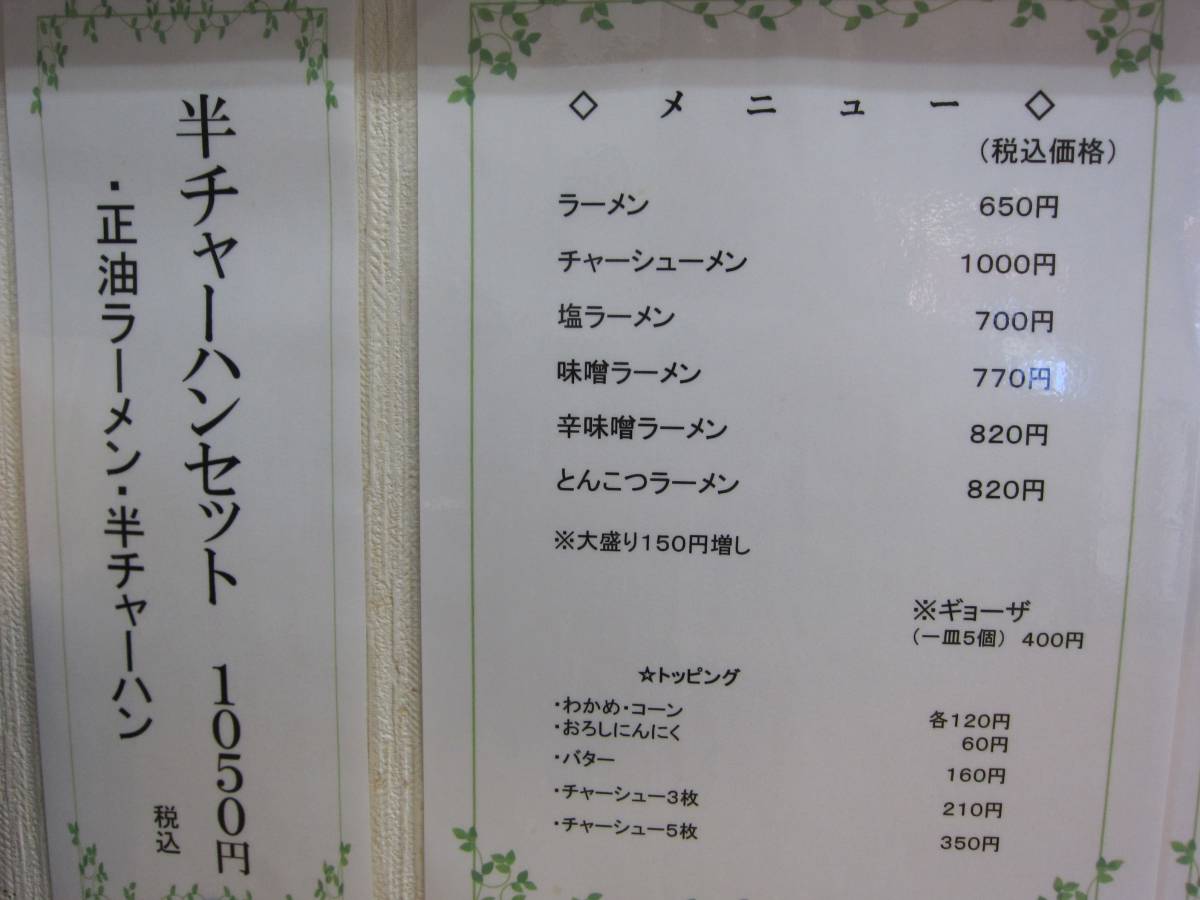 半チャーハンセット 1050円
・正油ラーメン・半チャーハン
税込
◇ メニュー ◇
(税込価格)
ラーメン 650円
チャーシューメン 1000円
塩ラーメン 700円
味噌ラーメン 770円
辛味噌ラーメン 820円
とんこつラーメン 820円
※大盛り150円増し
※ギョーザ
(一皿5個) 400円
☆トッピング
・わかめ・コーン 各120円
・おろしにんにく 60円
・バター 160円
・チャーシュー3枚 210円
・チャーシュー5枚 350円